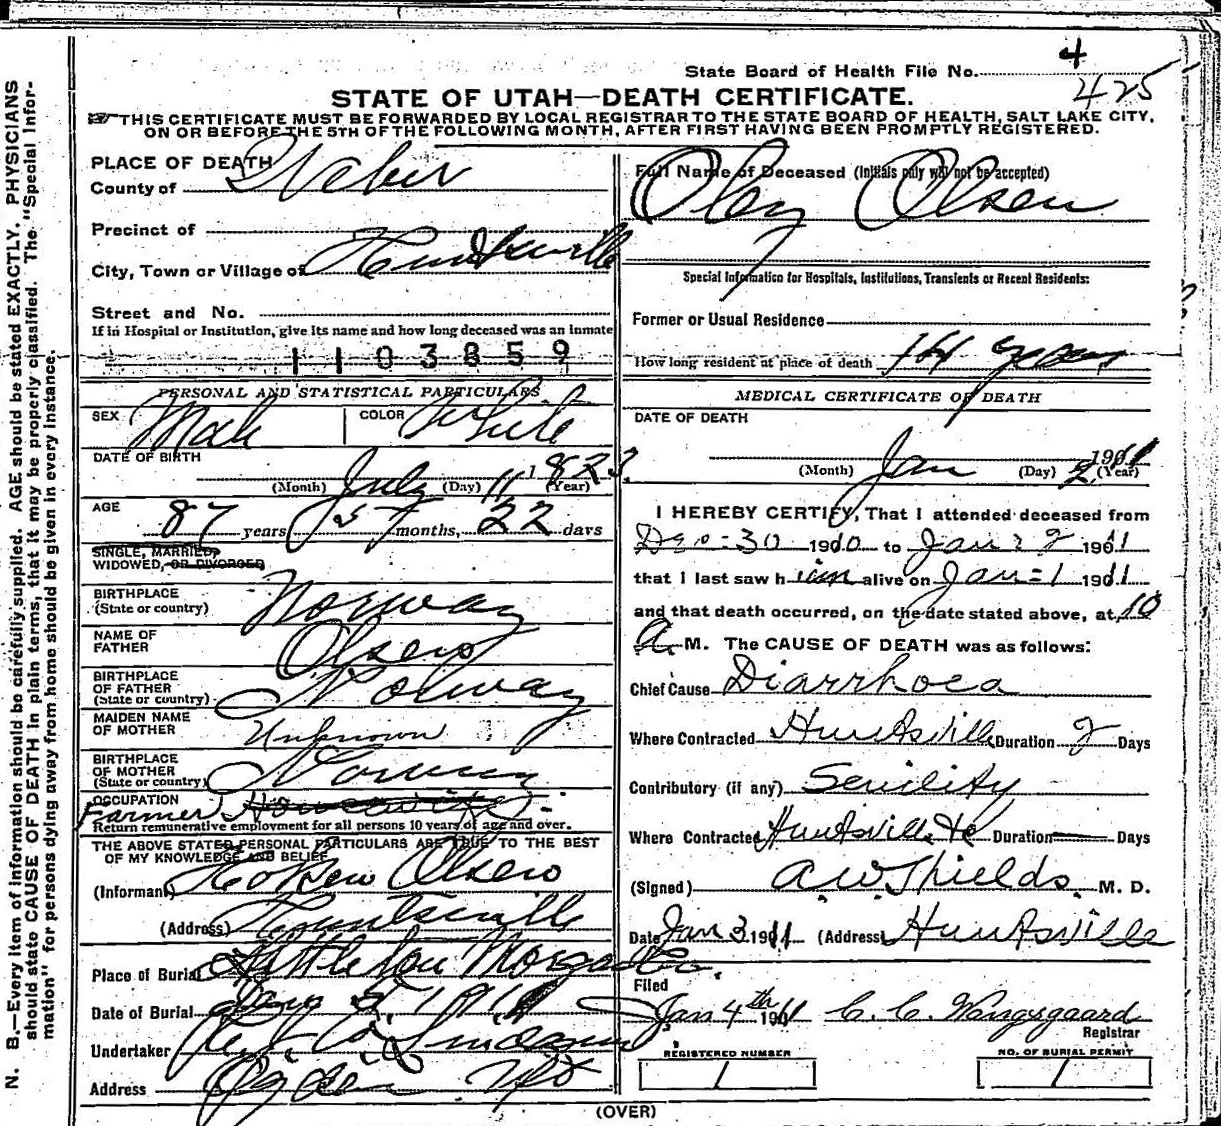 4
State Board of Health File No. 425
STATE OF UTAH—DEATH CERTIFICATE.
THIS CERTIFICATE MUST BE FORWARDED BY LOCAL REGISTRAR TO THE STATE BOARD OF HEALTH, SALT LAKE CITY,
ON OR BEFORE THE 5TH OF THE FOLLOWING MONTH, AFTER FIRST HAVING BEEN PROMPTLY REGISTERED.
PLACE OF DEATH
County of Weber
Precinct of
City, Town or Village of Huntsville
Street and No.
If in Hospital or Institution, give its name and how long deceased was an inmate
1103859
PERSONAL AND STATISTICAL PARTICULARS
SEX Male COLOR White
DATE OF BIRTH
(Month) July (Day) 11 1823. (Year)
AGE
87 years 5 months, 22 days
SINGLE, MARRIED,
WIDOWED, OR DIVORCED
BIRTHPLACE
(State or country) Norway
NAME OF
FATHER Olsen
BIRTHPLACE
OF FATHER
(State or country) Norway
MAIDEN NAME
OF MOTHER Unknown
BIRTHPLACE
OF MOTHER
(State or country) Norway
OCCUPATION
Farmer Housewife
Return remunerative employment for all persons 10 years of age and over.
THE ABOVE STATED PERSONAL PARTICULARS ARE TRUE TO THE BEST
OF MY KNOWLEDGE AND BELIEF
(Informant) Olsen
(Address) Huntsville
Place of Burial Morgan Co.
Date of Burial
Undertaker
Address Ogden
Full Name of Deceased (Initials only will not be accepted)
Oley Olsen
Special Information for Hospitals, Institutions, Transients or Recent Residents:
Former or Usual Residence
How long resident at place of death years
MEDICAL CERTIFICATE OF DEATH
DATE OF DEATH
(Month) Jan (Day) 2, 1911 (Year)
I HEREBY CERTIFY, That I attended deceased from
Dec-30 1910 to Jan 2 1911
that I last saw him alive on Jan-1 1911
and that death occurred, on the date stated above, at 10
A. M. The CAUSE OF DEATH was as follows:
Chief Cause Diarrhoea
Where Contracted Huntsville Duration 2 Days
Contributory (if any) Senility
Where Contracted Huntsville Duration — Days
(Signed) A W Shields, M. D.
Date Jan 3 1911 (Address) Huntsville
Filed
Jan 4th 1911 C. C. Wangsgaard
Registrar
REGISTERED NUMBER
1
NO. OF BURIAL PERMIT
1
(OVER)
N. B.—Every item of information should be carefully supplied. AGE should be stated EXACTLY. PHYSICIANS
should state CAUSE OF DEATH in plain terms, that it may be properly classified. The "Special Infor-
mation" for persons dying away from home should be given in every instance.